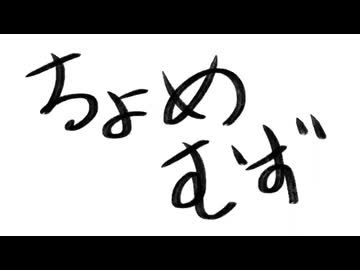 ちょめ
むず